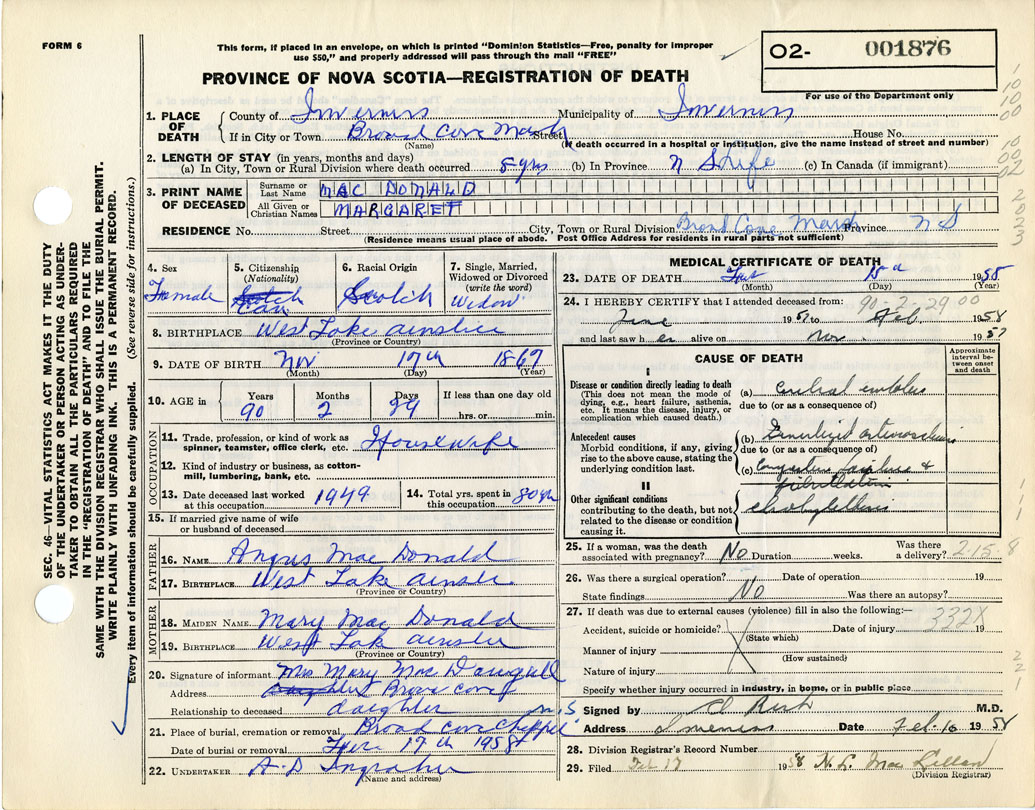 FORM 6
This form, if placed in an envelope, on which is printed "Dominion Statistics—Free, penalty for improper
use $50," and properly addressed will pass through the mail "FREE"
02- 001876
For use of the Department only
PROVINCE OF NOVA SCOTIA—REGISTRATION OF DEATH
1. PLACE OF DEATH County of Inverness Municipality of Inverness
If in City or Town Broad Cove Marsh Street House No.
(Name) (If death occurred in a hospital or institution, give the name instead of street and number)
2. LENGTH OF STAY (in years, months and days)
(a) In City, Town or Rural Division where death occurred 8 yrs (b) In Province N S Life (c) In Canada (if immigrant)
3. PRINT NAME OF DECEASED
Surname or Last Name MAC DONALD
All Given or Christian Names MARGARET
RESIDENCE No. Street City, Town or Rural Division Broad Cove Marsh Province N S
(Residence means usual place of abode. Post Office Address for residents in rural parts not sufficient)
SEC. 46—VITAL STATISTICS ACT MAKES IT THE DUTY
OF THE UNDERTAKER OR PERSON ACTING AS UNDER-
TAKER TO OBTAIN ALL THE PARTICULARS REQUIRED
IN THE "REGISTRATION OF DEATH" AND TO FILE THE
SAME WITH THE DIVISION REGISTRAR WHO SHALL ISSUE THE BURIAL PERMIT.
WRITE PLAINLY WITH UNFADING INK. THIS IS A PERMANENT RECORD.
Every item of information should be carefully supplied. (See reverse side for instructions.)
4. Sex 5. Citizenship (Nationality) 6. Racial Origin 7. Single, Married, Widowed or Divorced (write the word)
Female Scotch Can Scotch Widow
8. BIRTHPLACE West Lake Ainslie
(Province or Country)
9. DATE OF BIRTH Nov 17th 1867
(Month) (Day) (Year)
10. AGE in Years Months Days If less than one day old
90 2 29 hrs. or min.
OCCUPATION
11. Trade, profession, or kind of work as spinner, teamster, office clerk, etc. Housewife
12. Kind of industry or business, as cotton-mill, lumbering, bank, etc.
13. Date deceased last worked at this occupation 1949 14. Total yrs. spent in this occupation 80 yrs
15. If married give name of wife or husband of deceased
FATHER
16. NAME Angus Mac Donald
17. BIRTHPLACE West Lake Ainslie
(Province or Country)
MOTHER
18. MAIDEN NAME Mary Mac Donald
19. BIRTHPLACE West Lak Ainslie
(Province or Country)
20. Signature of informant Mrs Mary Mac Dougall
Address Broad Cove
Relationship to deceased daighter N.S
21. Place of burial, cremation or removal Broad cove Chappel
Date of burial or removal 17th 1958
22. UNDERTAKER A. D Ingraham
(Name and address)
MEDICAL CERTIFICATE OF DEATH
23. DATE OF DEATH Feb 15th 1958
(Month) (Day) (Year)
90-2-29 00
24. I HEREBY CERTIFY that I attended deceased from:
June 1957 to Feb. 1958
and last saw h er alive on Nov. 1957
CAUSE OF DEATH
Approximate interval between onset and death
I
Disease or condition directly leading to death
(This does not mean the mode of
dying, e.g., heart failure, asthenia,
etc. It means the disease, injury, or
complication which caused death.)
(a) Cerebral embolus
due to (or as a consequence of)
Antecedent causes
Morbid conditions, if any, giving
rise to the above cause, stating the
underlying condition last.
(b) Generalized arteriosclerosis
due to (or as a consequence of)
(c) Congestive failure & fibrillation
II
Other significant conditions
contributing to the death, but not
related to the disease or condition
causing it.
25. If a woman, was the death associated with pregnancy? No Duration weeks. Was there a delivery? 2-15-8
26. Was there a surgical operation? Date of operation 19
State findings No Was there an autopsy?
27. If death was due to external causes (violence) fill in also the following:—
Accident, suicide or homicide? Date of injury 332X 19
(State which)
Manner of injury
(How sustained)
Nature of injury
Specify whether injury occurred in industry, in home, or in public place
Signed by M.D.
Address Inverness Date Feb. 16 1958
28. Division Registrar's Record Number
29. Filed Feb 17 1958 Mac Lellan
(Division Registrar)